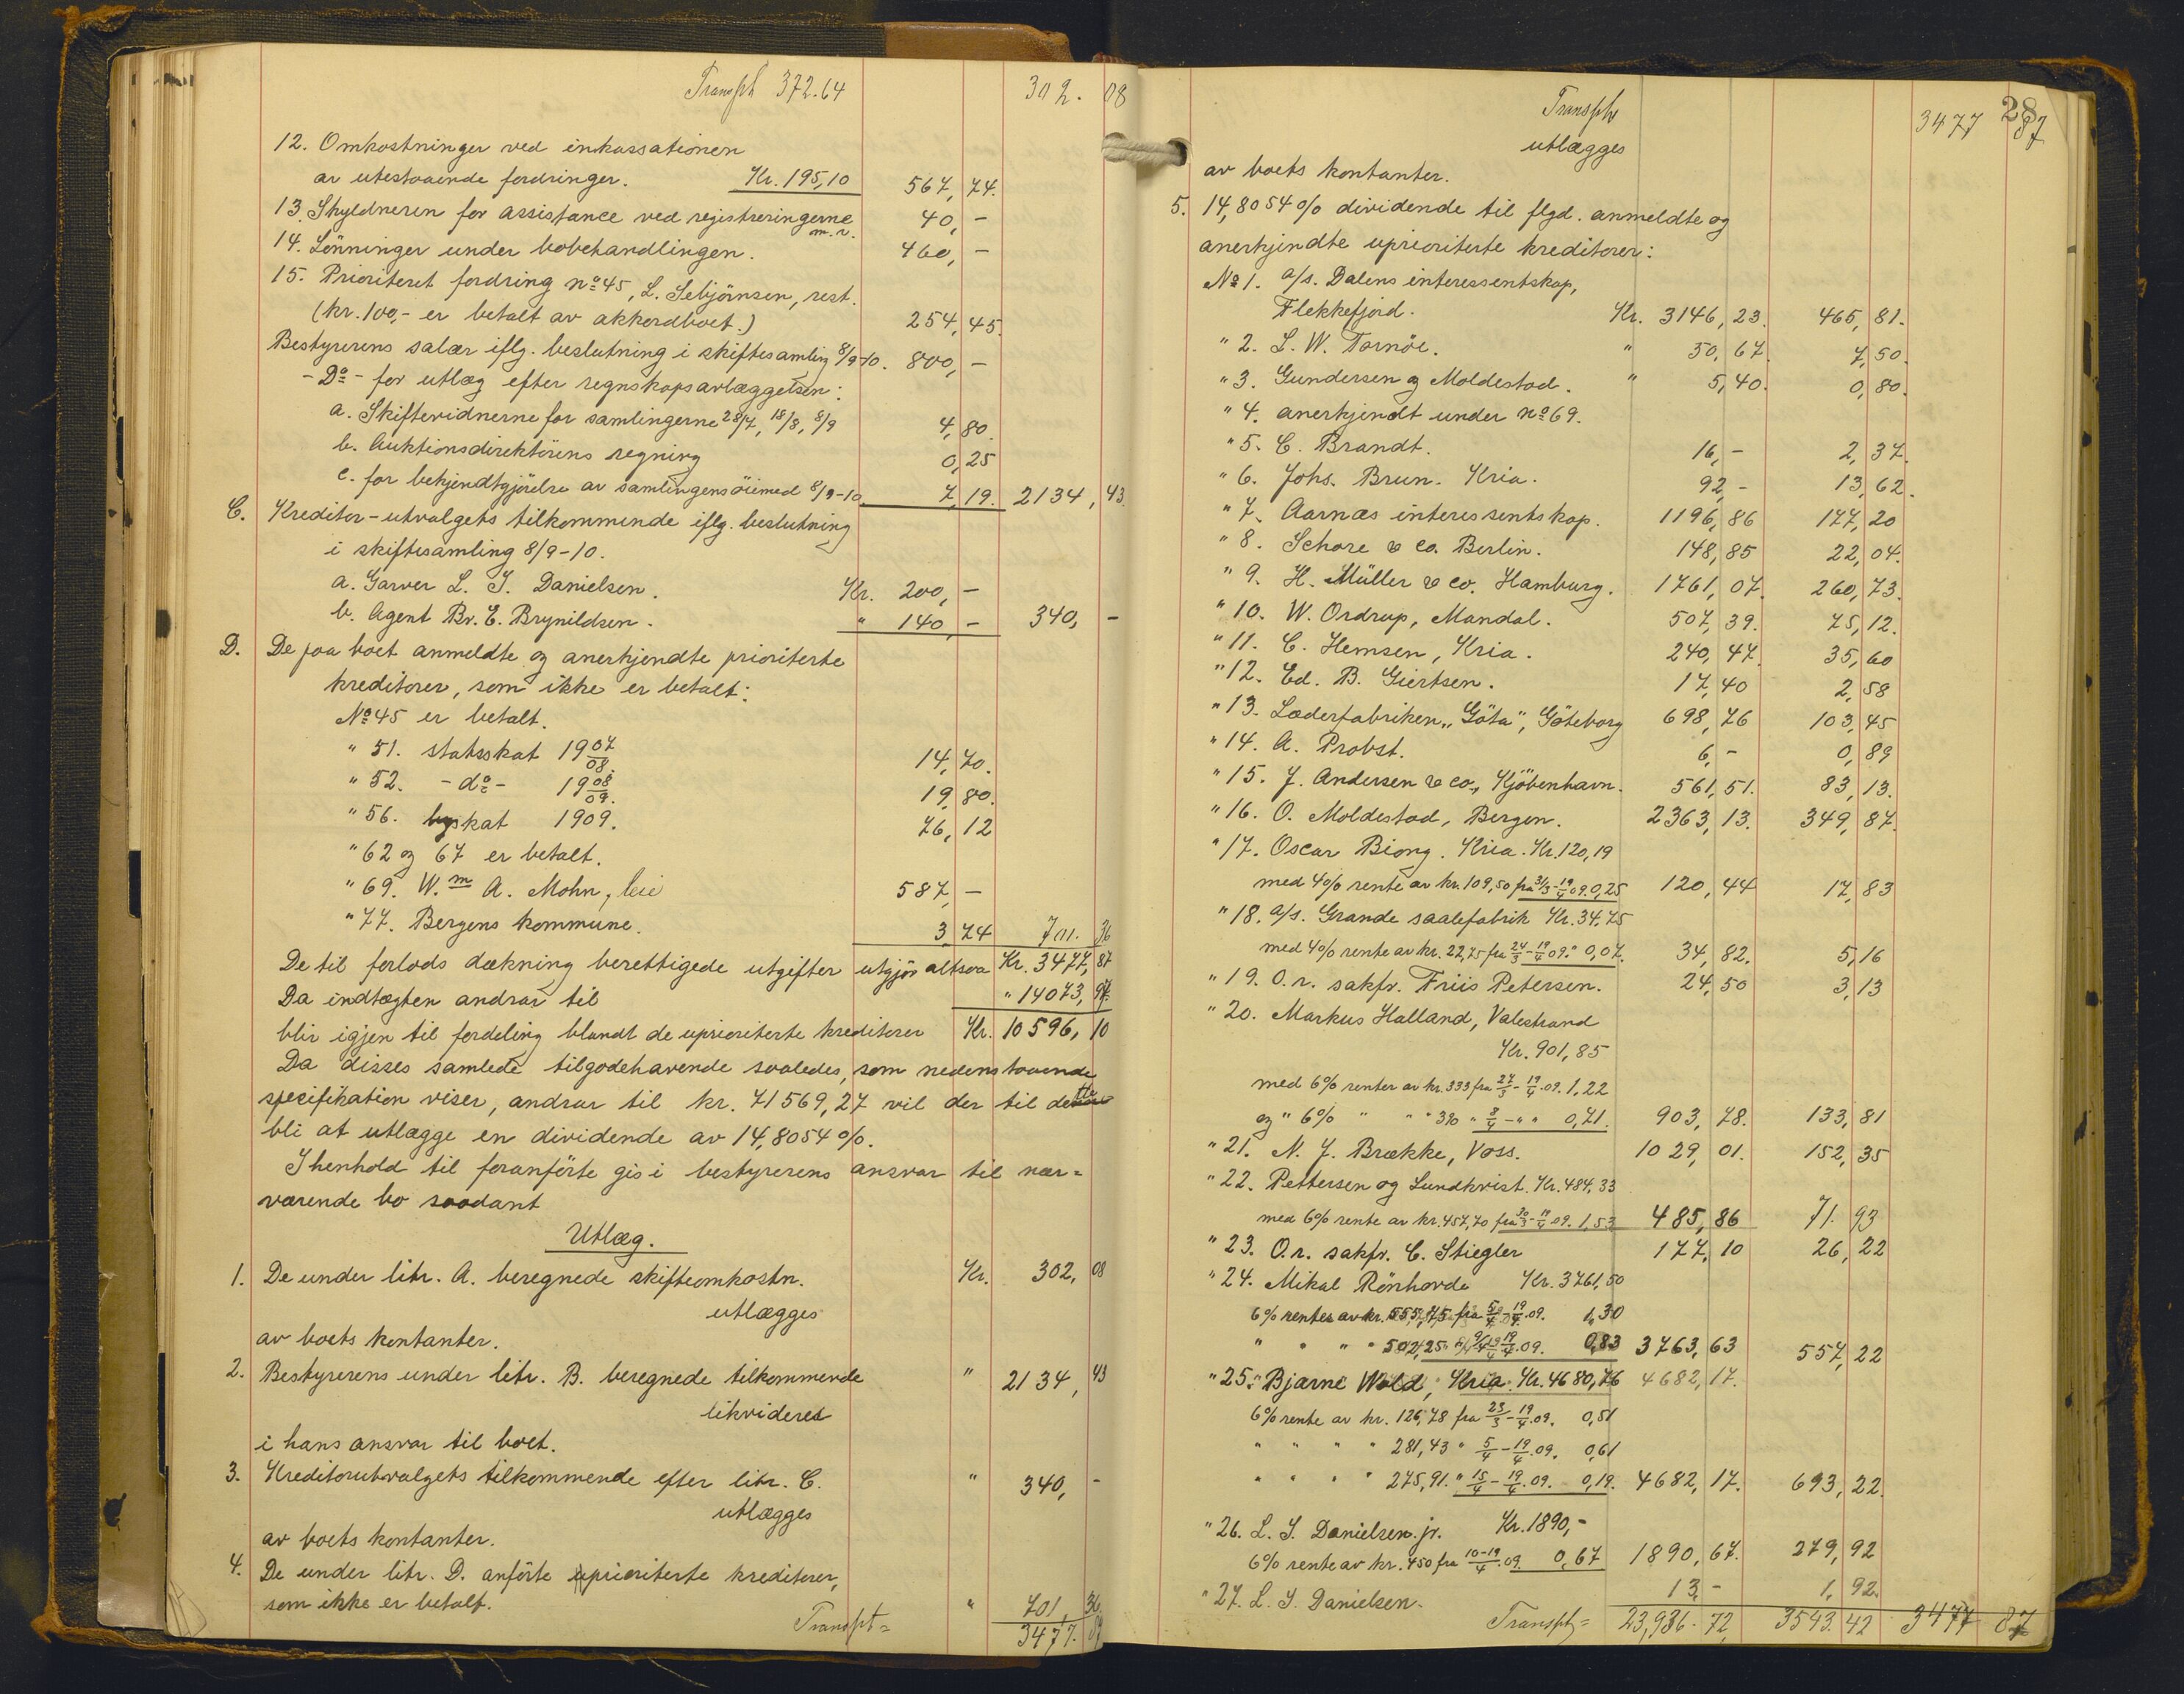 Transpt 372.64 302. 08
12. Omkostninger ved inkassationen
av utestaaende fordringer. Kr. 195,10 567, 74.
13. Skyldneren for assistance ved registreringerne m.v. 40, -
14. Lönninger under bobehandlingen. 460, -
15. Prioritert fordring no 45, L. Sebjörnsen, rest.
(kr. 100,- er betalt av akkordboet.) 254, 45.
Bestyrerens salær iflg. beslutning i skiftesamling 8/9-10. 800, -
- Do - for utlæg efter regnskapsavlæggelsen:
a. Skiftevidnerne for samlingerne 28/7, 18/8, 8/9 4, 80.
b. Auktionsdirektörens regning 0, 25
c. for bekjendtgjörelse av samlingens öiemed 8/9-10 7, 19. 2134, 43.
C. Kreditor-utvalgets tilkommende iflg. beslutning
i skiftesamling 8/9-10.
a. Garver L. J. Danielsen. Kr. 200, -
b. Agent Br. E. Brynildsen. " 140, - 340, -
D. De paa boet anmeldte og anerkjendte prioriterte
kreditorer, som ikke er betalt:
No 45 er betalt.
" 51. statsskat 1907/08. 14, 70.
" 52. - do - 1908/09. 19, 80.
" 56. byskat 1909. 76, 12
" 62 og 67 er betalt.
" 69. W.m A. Mohn, leie 587, -
" 77. Bergens kommune. 3 74 701. 36
De til forlods dækning berettigede utgifter utgjör altsaa Kr. 3477, 87
Da indtægten andrar til " 14073, 97.
blir igjen til fordeling blandt de uprioriterte kreditorer Kr. 10596, 10
Da disses samlede tilgodehavende saaledes, som nedenstaaende
specifikation viser, andrar til kr. 71569,27 vil der til dette
bli at utlægge en dividende av 14,8054 %.
I henhold til foranförte gis i bestyrerens ansvar til nær=
værende bo saadant
Utlæg.
1. De under litr. A. beregnede skifteomkostn. Kr. 302, 08
utlægges
av boets kontanter.
2. Bestyrerens under litr. B. beregnede tilkommende " 2134, 43
likvideres
i hans ansvar til boet.
3. Kreditorutvalgets tilkommende efter litr. C. " 340, -
utlægges
av boets kontanter.
4. De under litr. D. anförte prioriterte kreditorer,
som ikke er betalt. " 701, 36
Transpt= 3477. 87
287
Transpt 3477 87
utlægges
av boets kontanter.
5. 14,8054 % dividende til flgd. anmeldte og
anerkjendte uprioriterte kreditorer:
No 1. a/s. Dalens interessentskap,
Flekkefjord. Kr. 3146, 23. 465, 81.
" 2. L. W. Tornöe. " 50, 67. 7, 50.
" 3. Gundersen og Moldestad. " 5, 40. 0, 80.
" 4. anerkjendt under no 69.
" 5. C. Brandt. 16, - 2, 37.
" 6. Johs. Brun. Kria. 92, - 13, 62.
" 7. Aarnæs interessentskap. 1196, 86 177, 20
" 8. Schore & co. Berlin. 148, 85 22, 04.
" 9. H. Müller & co. Hamburg. 1761, 07. 260, 73.
" 10. W. Ordrup, Mandal. 507, 39. 75, 12.
" 11. C. Hemsen, Kria. 240, 47. 35, 60
" 12. Ed. B. Giertsen. 17, 40 2, 58
" 13. Læderfabriken "Göta", Göteborg 698, 76 103, 45
" 14. A. Probst. 6, - 0, 89
" 15. J. Andersen & co., Kjöbenhavn. 561, 51. 83, 13.
" 16. O. Moldestad, Bergen. 2363, 13. 349, 87.
" 17. Oscar Biong. Kria. Kr. 120,19
med 4% rente av kr. 109,50 fra 31/3-19/4 09. 0,25 120, 44 17, 83
" 18. a/s. Grande saalefabrik Kr. 34,75
med 4% rente av kr. 22,75 fra 24/3-19/4 09. " 0,07. 34, 82. 5, 16
" 19. O.r. sakfr. Friis Petersen. 24, 50 3, 13
" 20. Markus Halland, Valestrand
Kr. 901,85
med 6% renter av kr. 333 fra 27/3-19/4.09. 1,22
og " 6% " " " 390 " 8/4 - " " 0,71. 903, 78. 133, 81
" 21. N. J. Brække, Voss. 1029, 01. 152, 35
" 22. Pettersen og Lundkvist. Kr. 484,33
med 6% rente av kr. 457,70 fra 30/3-19/4 09. 1,53 485, 86 71. 93
" 23. O.r. sakfr. C. Stiegler 177, 10 26, 22
" 24. Mikal Rönhovde Kr. 3761,50
6% rentes av kr. 555,75 fra 5/4-19/4.09. 1,30
" " " " 502,25 " 9/4-19/4.09. 0,83 3763, 63 557, 22
" 25. Bjarne Wold, Kria. Kr. 4680,76 4682, 17.
6% rente av kr. 126,78 fra 23/3-19/4.09. 0,51
" " " " 281,43 " 5/4-19/4.09. 0,61
" " " " 275,91. " 15/4-19/4.09. 0,19. 4682, 17. 693, 22.
" 26. L. J. Danielsen jr. Kr. 1890,-
6% rente av kr. 450 fra 10-19/4.09. 0,67 1890, 67. 279, 92
" 27. L. J. Danielsen. 13, - 1, 92.
Transpt= 23,936. 72 3543. 42 3477 87